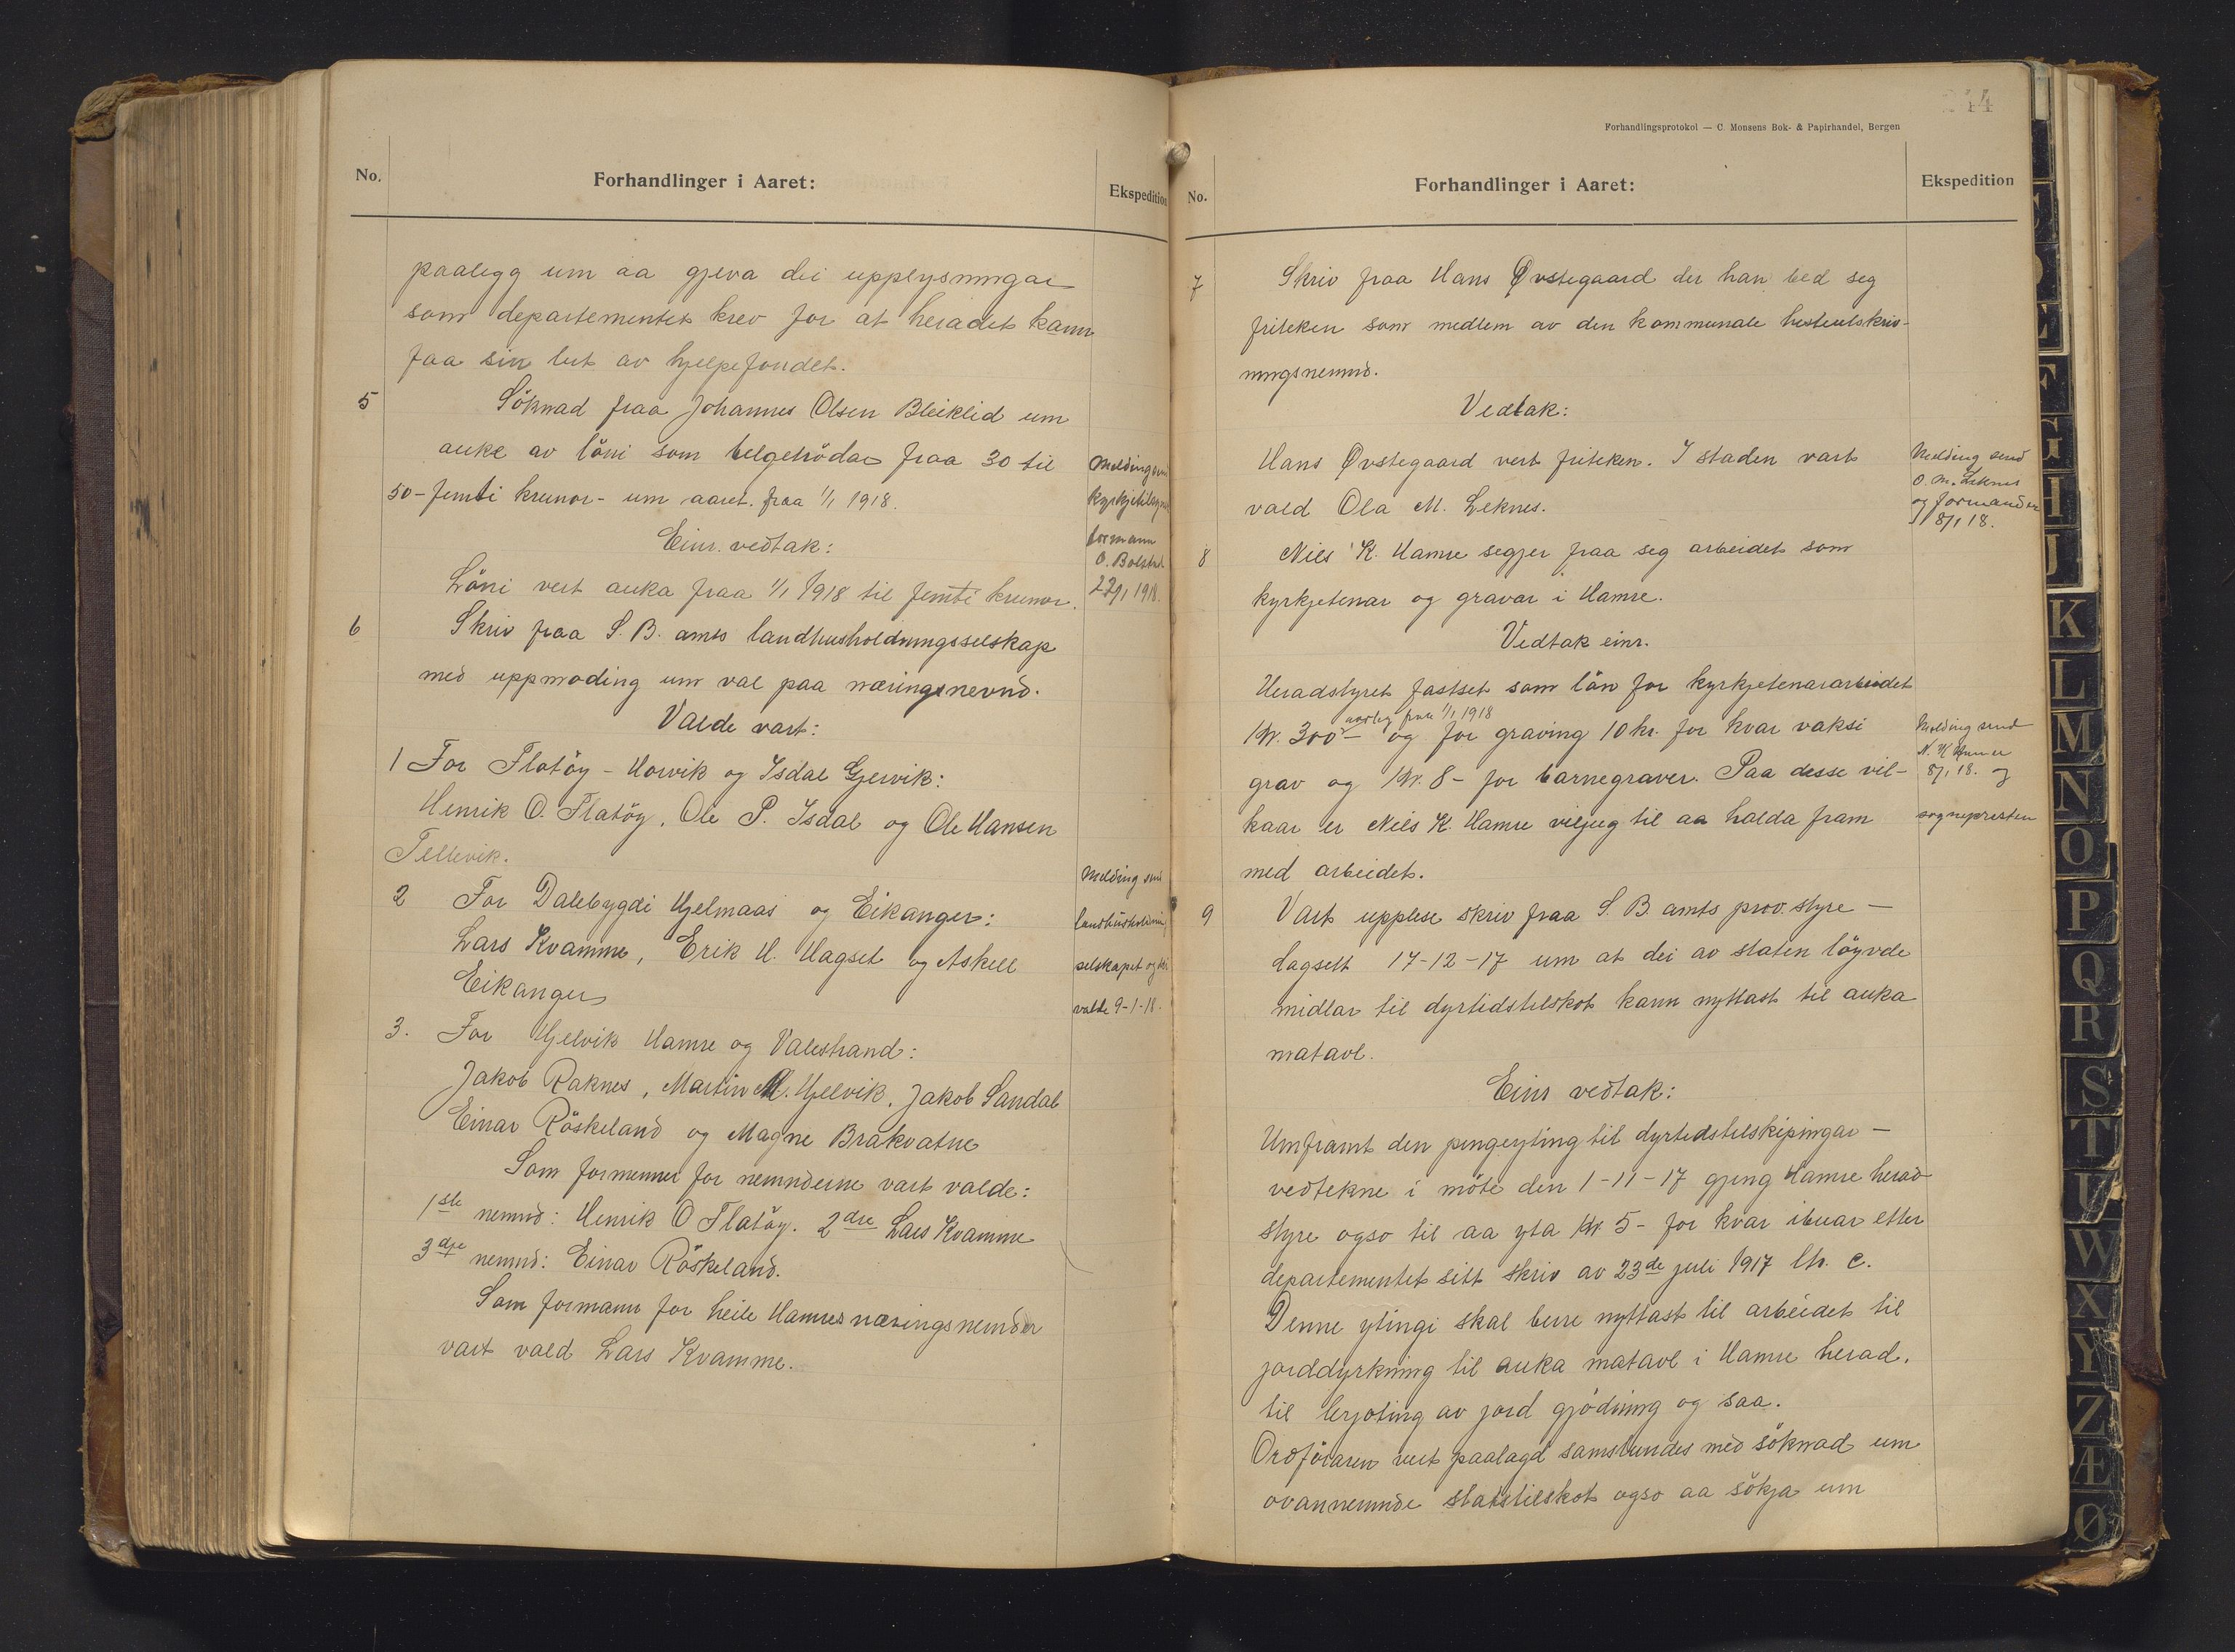 No.
Forhandlinger i Aaret:
Ekspedition
paalegg um aa gjeva dei upplysningar
som departementet krev for at heradet kann
faa sin lut av hjelpefondet.
5
Söknad fraa Johannes Olsen Bleiklid um
auke av löni som belgetrödar fraa 30 til
50 - femti krunor - um aaret. fraa 1/1 1918.
Einr. vedtak:
Löni vert auka fraa 1/1 1918 til femti krunor.
Melding
kyrkjetilsyns
formann
O. Bolstad
1918.
6
Skriv fraa S. B. amts landhusholdningsselskap
med uppmoding um val paa næringsnevnd.
Valde vart:
1 For Flatöy - Horvik og Isdal Gjervik:
Henrik O. Flatöy, Ole P. Isdal og Ole Hansen
Tellevik.
2 For Dalebygdi Hjelmaas og Eikanger:
Lars Kvamme, Erik H. Hagset og Askell
Eikanger
3. For Hjelvik Hamre og Valestrand:
Jakob Raknes, Martin M. Hjelvik, Jakob Sandal
Einar Röskeland og Magne Brakvatne
Melding send
landhusholdnin
selskapet og dei
valde 9-1-18.
Som formenner for nemnderne vart valde:
1ste nemnd: Henrik O Flatöy. 2dre Lars Kvamme
3dje nemnd: Einar Röskeland.
Som formann for heile Hamres næringsnemnder
vart vald Lars Kvamme.
44
Forhandlingsprotokol — C. Monsens Bok- & Papirhandel, Bergen
No.
Forhandlinger i Aaret:
Ekspedition
7
Skriv fraa Hans Øvstegaard der han bed seg
friteken som medlem av den kommunale hesteutskriv-
ningsnemnd.
Vedtak:
Hans Øvstegaard vert friteken. I staden vart
vald Ola M. Leknes.
Melding send
O. M. Leknes
og formanden
8/1 18.
8
Nils K. Hamre segjer fraa seg arbeidet som
kyrkjetenar og gravar i Hamre.
Vedtak einr.
Heradstyret fastset som lön for kyrkjetenararbeidet
aarleg fraa 1/1 1918
Kr. 300 - og for graving 10 kr. for kvar vaksi
grav og Kr. 8 - for barnegraver. Paa desse vil-
kaar er Nils K. Hamre viljug til aa halda fram
med arbeidet.
Melding send
N. K Hamre
8/1 18. og
sognepresten
9
Vart upplese skriv fraa S. B. amts prov. styre -
dagsett 17-12-17 um at dei av staten löyvde
midlar til dyrtidstilskot kann nyttast til auka
matavl.
Einr vedtak:
Umframt den pengeyting til dyrtidstilskipingar -
vedtekne i möte den 1-11-17 gjeng Hamre herad-
styre ogso til aa yta Kr 5 - for kvar ibuar etter
departementet sitt skriv av 23de juli 1917 ltr. c.
Denne ytingi skal berre nyttast til arbeidet til
jorddyrkning til auka matavl i Hamre herad,
til brjoting av jord gjödning og saa.
Ordföraren vert paalagd samstundes med söknad um
ovannemnde statstilskot ogso aa sökja um
G
H
I
J
K
L
M
N
O
P
Q
R
S
T
U
W
X
Y
Z
Æ
Ø